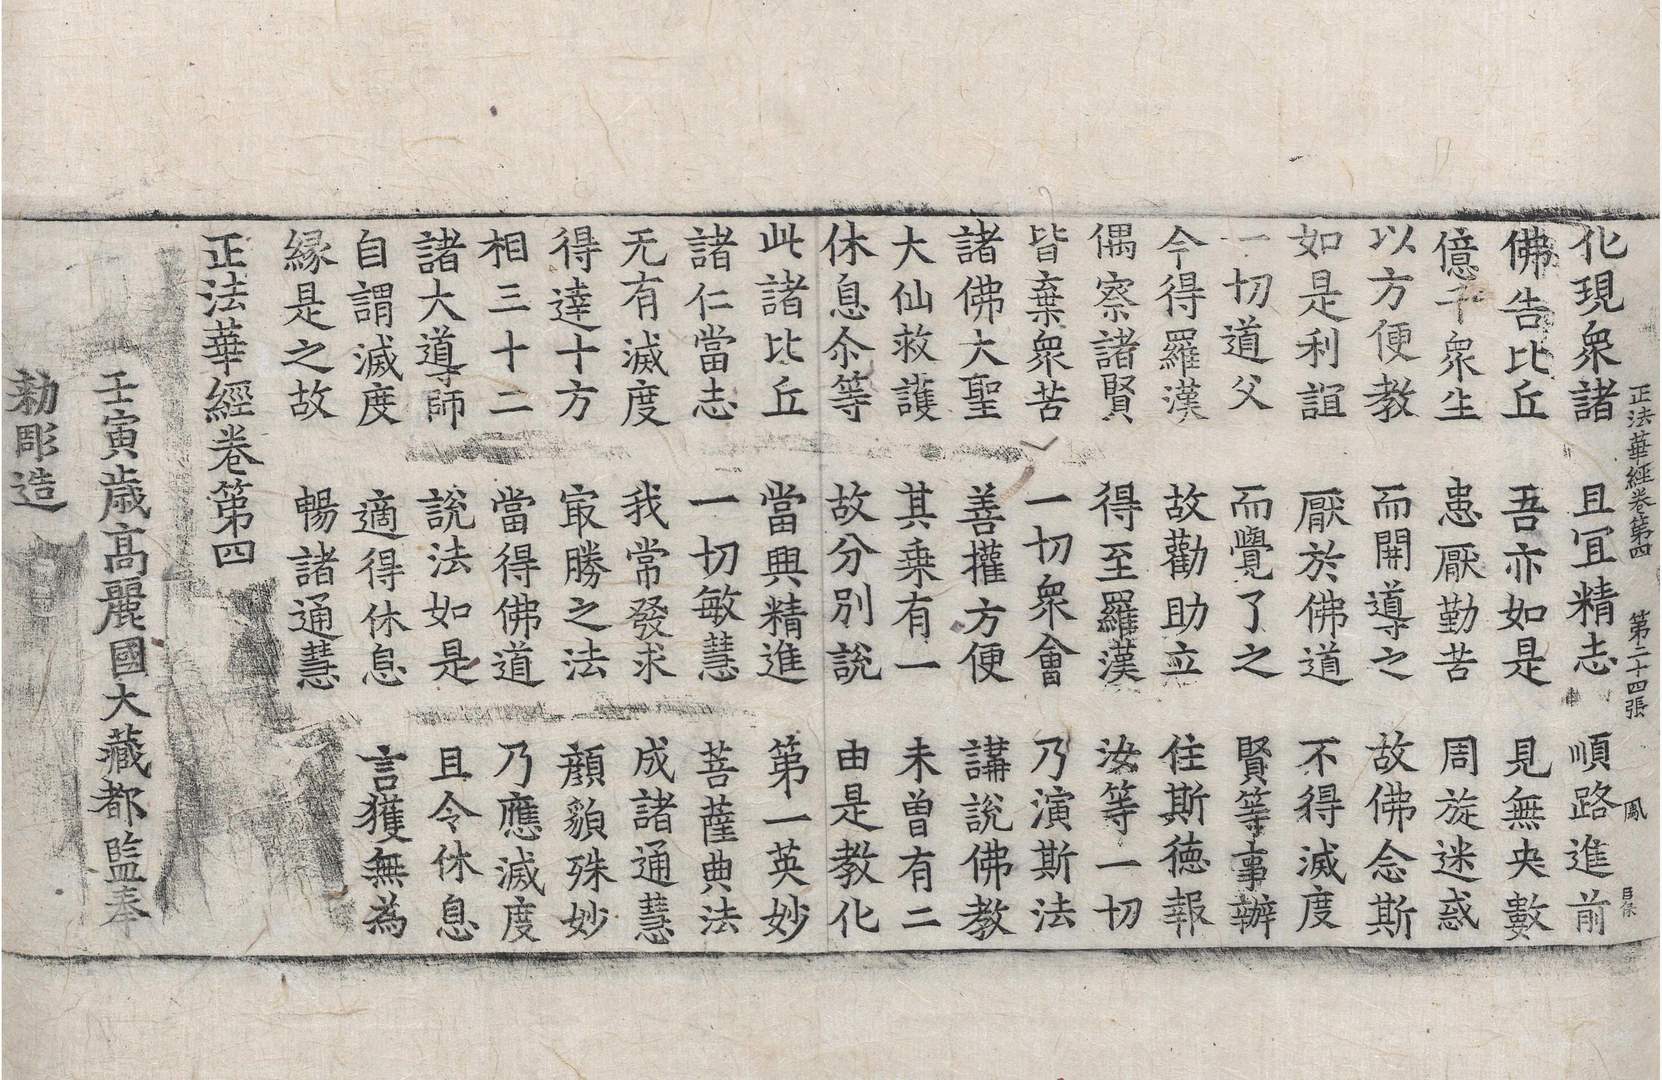 正法華經卷第四 第二十四張 鳳
化現衆諸 且冝精志 順路進前
佛告比丘 吾亦如是 見無央數
億千衆生 患厭勤苦 周旋迷惑
以方便教 而開導之 故佛念斯
如是利誼 厭於佛道 不得滅度
一切道父 而覺了之 賢等事辦
今得羅漢 故勸助立 住斯德報
偶察諸賢 得至羅漢 汝等一切
皆棄衆苦 一切衆會 乃演斯法
諸佛大聖 善權方便 講說佛教
大仙救護 其乗有一 未曽有二
休息尒等 故分別說 由是教化
此諸比丘 當興精進 第一英妙
諸仁當志 一切敏慧 菩薩典法
无有滅度 我常發求 成諸通慧
得達十方 冣勝之法 顔貌殊妙
相三十二 當得佛道 乃應滅度
諸大導師 說法如是 且令休息
自謂滅度 適得休息 言獲無為
縁是之故 暢諸通慧
正法華經卷第四
壬寅歳高麗國大藏都監奉
勑彫造